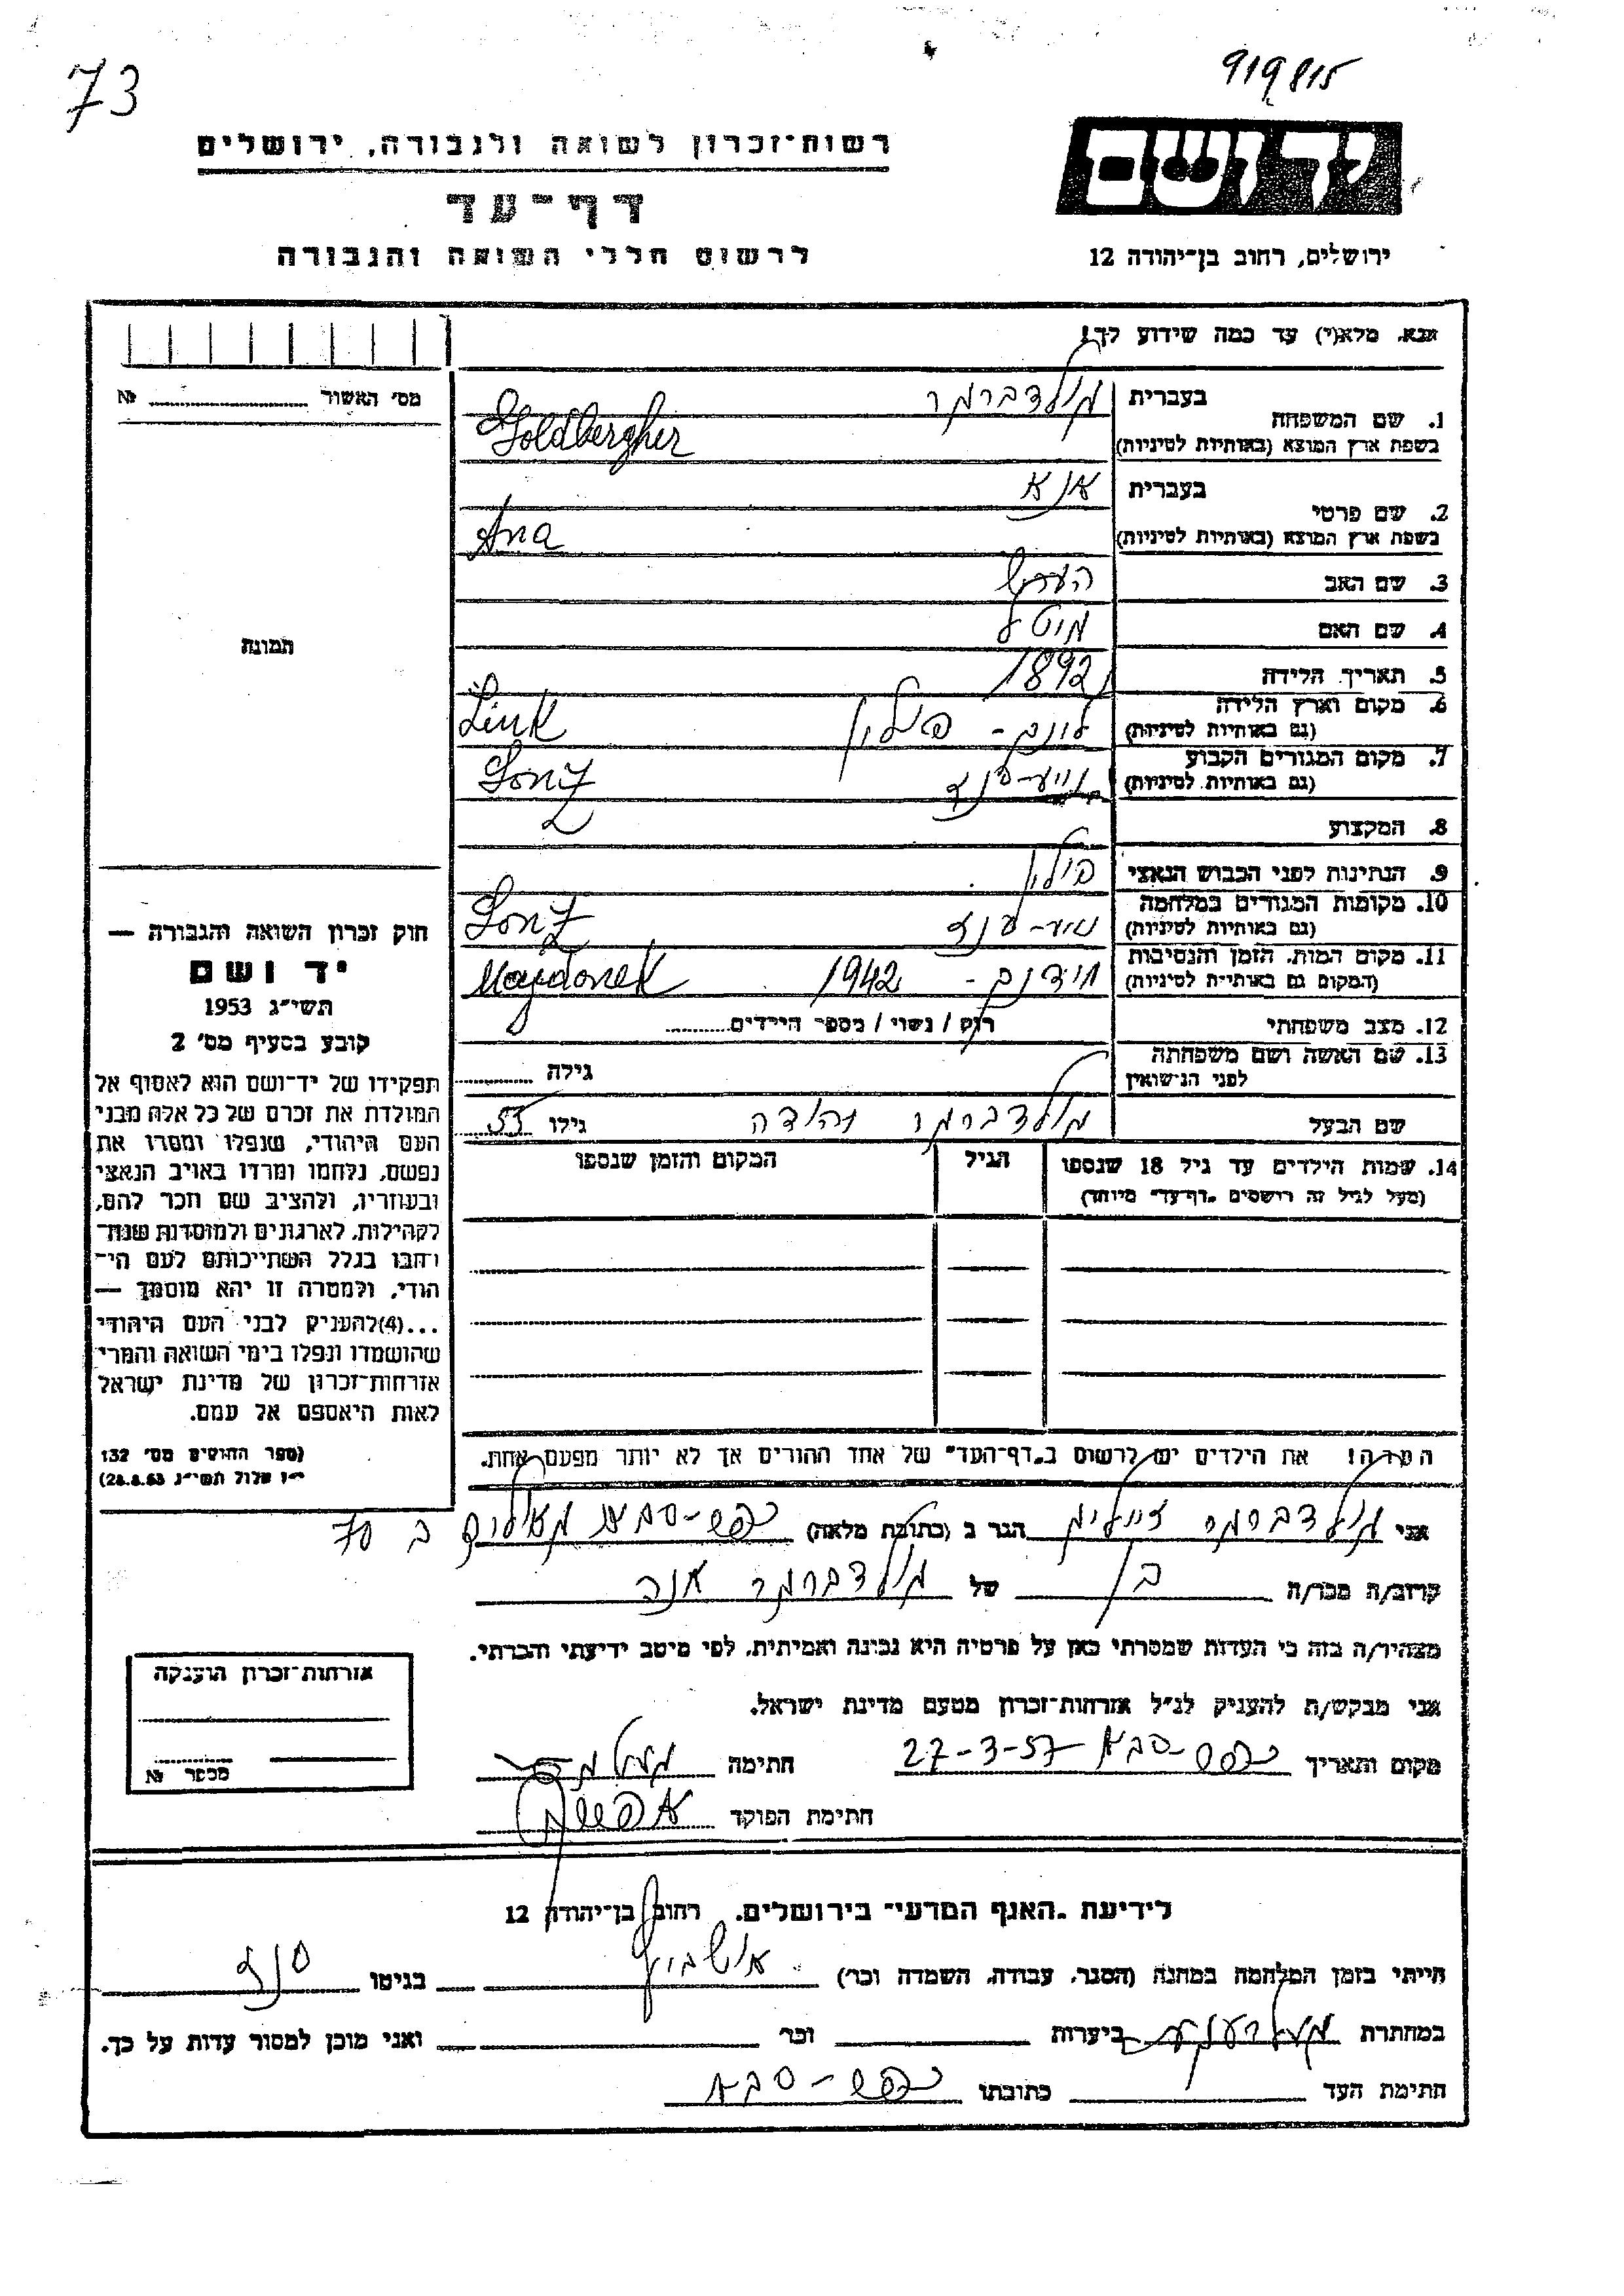 73
919815
יד ושם
רשות־זכרון לשואה ולגבורה, ירושלים
דף־עד
לרשום חללי השואה והגבורה
ירושלים, רחוב בן־יהודה 12
אנא, מלא(י) עד כמה שידוע לך!
מס׳ האשור № 
1. שם המשפחה
בעברית גולדברגר
בשפת ארץ המוצא (באותיות לטיניות) Goldbergher
2. שם פרטי
בעברית אנא
בשפת ארץ המוצא (באותיות לטיניות) Ana
3. שם האב הערש
4. שם האם
5. תאריך הלידה 1892
6. מקום וארץ הלידה
(גם באותיות לטיניות) פולין
7. מקום המגורים הקבוע
(גם באותיות לטיניות)
8. המקצוע
9. הנתינות לפני הכבוש הנאצי פולין
10. מקומות המגורים במלחמה
(גם באותיות לטיניות)
11. מקום המות, הזמן והנסיבות
(המקום גם באותיות לטיניות) 1942 Majdonek
12. מצב משפחתי רוק / נשוי / מספר הילדים
13. שם האשה ושם משפחתה
לפני הנישואין גילה
שם הבעל גולדברגר יהודה גילו 53
14. שמות הילדים עד גיל 18 שנספו
(מעל לגיל זה רושמים „דף־עד״ מיוחד)
הגיל
המקום והזמן שנספו
תמונה
חוק זכרון השואה והגבורה —
יד ושם
תשי״ג 1953
קובע בסעיף מס׳ 2
תפקידו של יד־ושם הוא לאסוף אל
המולדת את זכרם של כל אלה מבני
העם היהודי, שנפלו ומסרו את
נפשם, נלחמו ומרדו באויב הנאצי
ובעוזריו, ולהציב שם וזכר להם,
לקהילות, לארגונים ולמוסדות שנח־
רבו בגלל השתייכותם לעם הי־
הודי, ולמטרה זו יהא מוסמך —
...(4)להעניק לבני העם היהודי
שהושמדו ונפלו בימי השואה והמרי
אזרחות־זכרון של מדינת ישראל
לאות היאספם אל עמם.
(ספר החוקים מס׳ 132
י״ז אלול תשי״ג 28.8.53)
הערה! את הילדים יש לרשום ב„דף־העד״ של אחד ההורים אך לא יותר מפעם אחת.
אני גולדברגר הגר ב (כתובת מלאה) כפר־סבא ב 70
קרוב/ה מכר/ה בן של גולדברגר אנה
מצהיר/ה בזה כי העדות שמסרתי כאן על פרטיה היא נכונה ואמיתית, לפי מיטב ידיעתי והכרתי.
אני מבקש/ת להעניק לנ״ל אזרחות־זכרון מטעם מדינת ישראל.
מקום ותאריך כפר־סבא 27-3-57 חתימה
חתימת הפוקד
אזרחות־זכרון הוענקה
מספר №
לידיעת „האגף המדעי״ בירושלים, רחוב בן־יהודה 12
הייתי בזמן המלחמה במחנה (הסגר, עבודה, השמדה וכו׳) אושביץ בגיטו
במחתרת ביערות וכו׳ ואני מוכן למסור עדות על כך.
חתימת העד כתובתו כפר־סבא